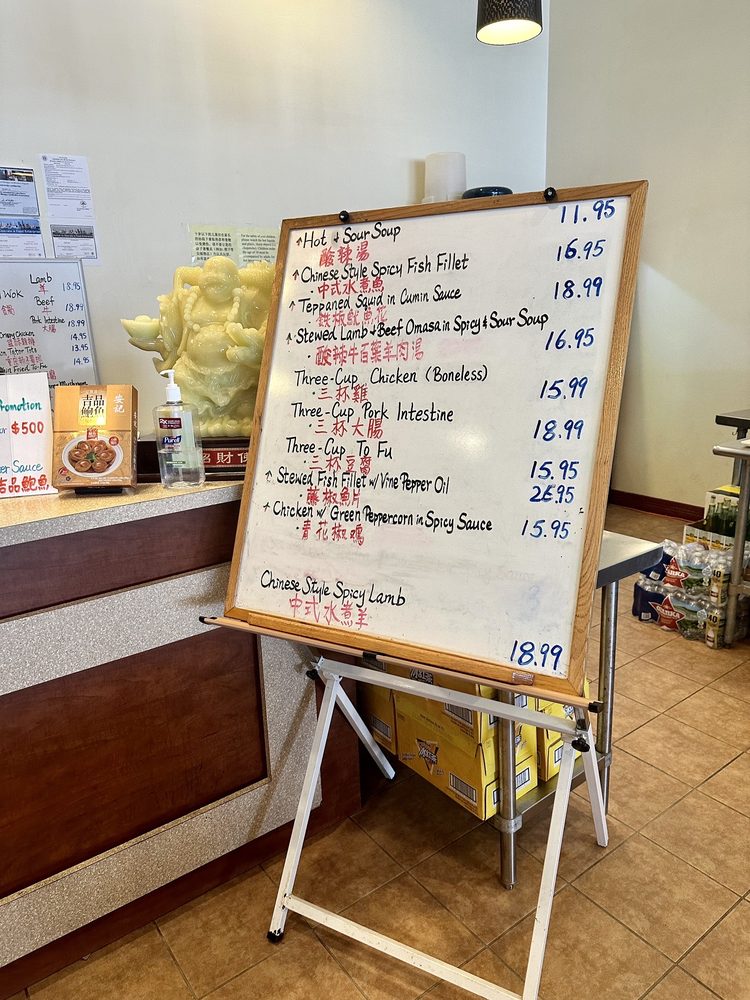 ↑ Hot & Sour Soup 11.95
酸辣湯
↑ Chinese Style Spicy Fish Fillet 16.95
中式水煮魚
↑ Teppaned Squid in Cumin Sauce 18.99
鉄板魷魚花
↑ Stewed Lamb & Beef Omasa in Spicy & Sour Soup 16.95
酸辣牛百葉羊肉湯
Three-Cup Chicken (Boneless) 15.99
三杯雞
Three-Cup Pork Intestine 18.99
三杯大腸
Three-Cup To Fu 15.95
三杯豆腐
↑ Stewed Fish Fillet w/ Vine Pepper Oil 26.95
藤椒魚片
↑ Chicken w/ Green Peppercorn in Spicy Sauce 15.95
青花椒鸡
Chinese Style Spicy Lamb
中式水煮羊
18.99
Lamb 18.95
羊
Wok
Beef 18.99
牛
Pork Intestine 18.99
大腸
Crispy Chicken 14.95
Tater Tots 13.95
Fried To-Fu 14.95
Promotion
$500
Sauce
吉品鮑魚
吉品
鮑魚
安記
Purell
招財佛